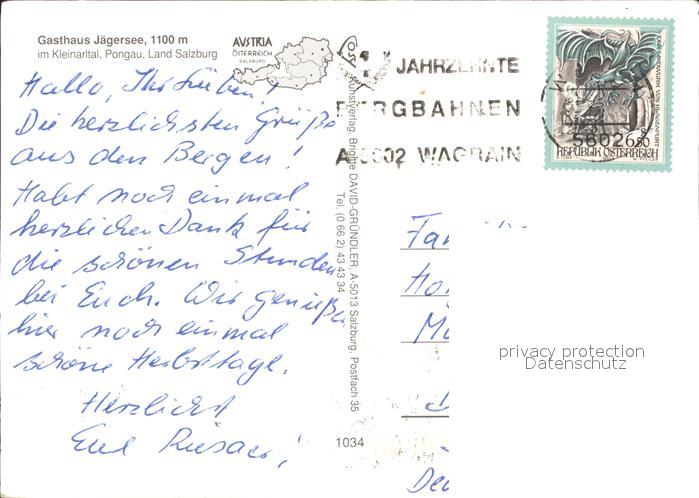 Gasthaus Jägersee, 1100 m
im Kleinarltal, Pongau, Land Salzburg
AVSTRIA
ÖSTERREICH
SALZBURG
Hallo, Ihr Lieben!
Die herzlichsten Grüße
aus den Bergen!
Habt noch einmal
herzlichen Dank für
die schönen Stunden
bei Euch. Wir genießen
hier noch einmal
schöne Herbsttage.
Herzlichst
Eure
Kunstverlag, Brigitte DAVID-GRÜNDLER, A-5013 Salzburg, Postfach 35
Tel. (0 66 2) 43 43 34
1034
4 JAHRZEHNTE
BERGBAHNEN
A-5602 WAGRAIN
5602
6.50
REPUBLIK ÖSTERREICH
Fam
Ho
Mü
D
Deu
privacy protection
Datenschutz